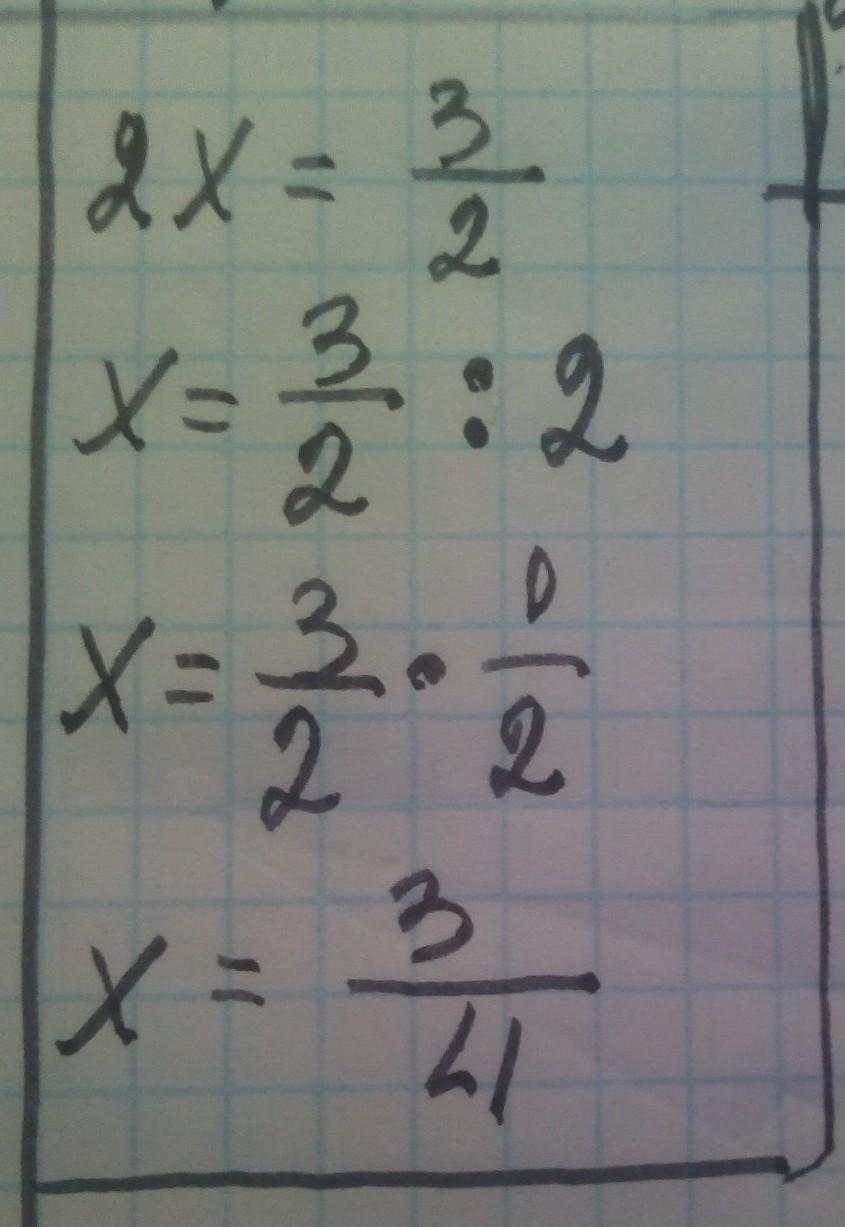 2x = 3/2
x = 3/2 : 2
x = 3/2 · 1/2
x = 3/4